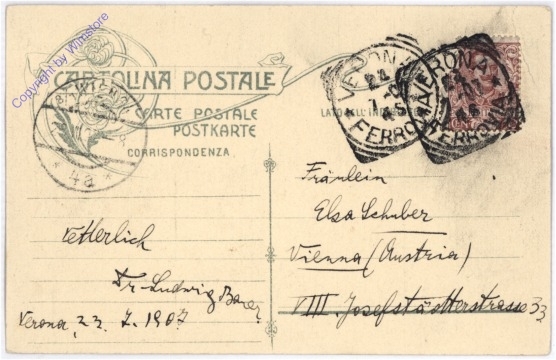 Copyright by Winstore
CARTOLINA POSTALE
CARTE POSTALE
POSTKARTE
CORRISPONDENZA
LATO DELL'
WIEN
4a
VERONA
FERROVIA
VERONA
FERROVIA
Fräulein
Elsa Schuber
Vienna (Austria)
VIII. Josefstädterstrasse 33
Dr. Ludwig Bauer
Verona, 23. 7. 1907